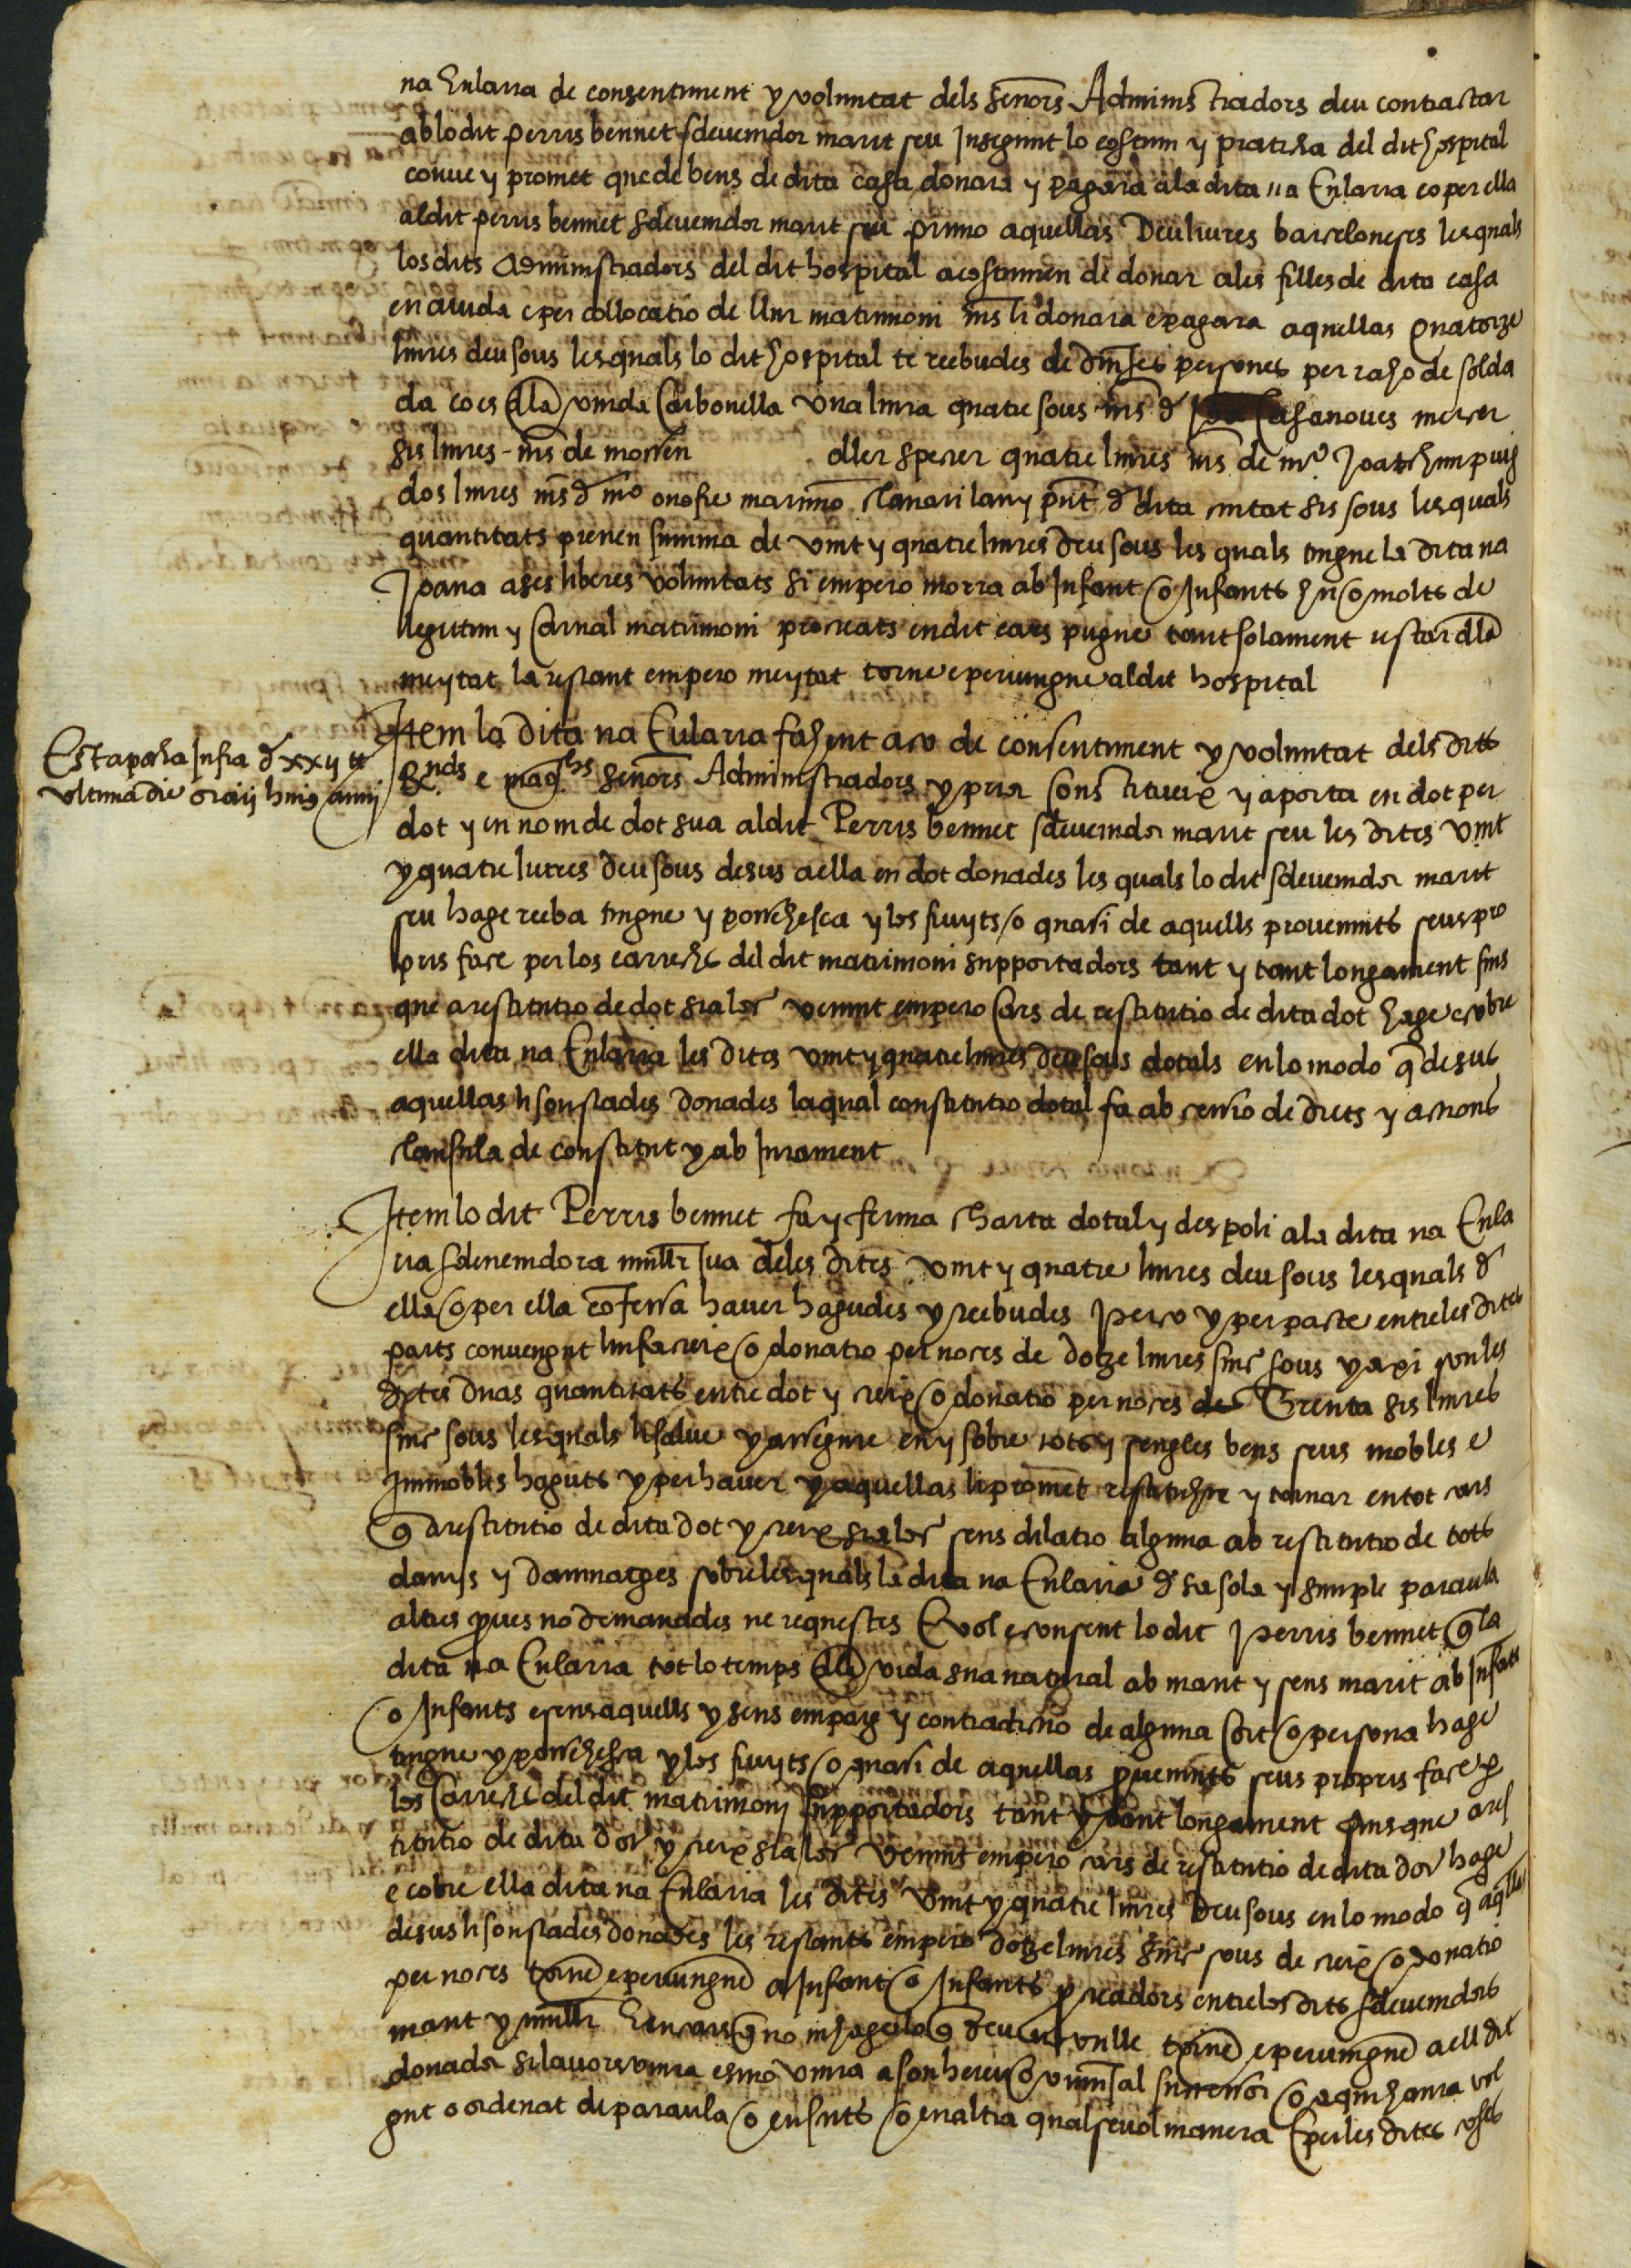 na Eularia de consentiment y voluntat dels senors Administradors deu contractar
ab lo dit perris bennet sdevenidor marit seu Inseguint lo costum y praticha del dit hospital
conve y promet que de bens de dita casa donara y pagara a la dita na Eularia eo per ella
al dit perris bennet sdevenidor marit seu primo aquellas Deu liures barceloneses les quals
los dits Administradors del dit hospital acostumen de donar a les filles de dita casa
en aiuda e per collocatio de llur matrimoni mes li donara e pagara aquellas quatorze
liures deu sous les quals lo dit hospital te reebudes de diverses persones per raho de solda
da ço es dla viuda Carbonella una liura quatre sous mes d Casanoves mercer
sis liures mes de mossen oller sperer quatre liures mes de mº Joatxim puig
dos liures mes d mº onofre marimo Canari lany pnt d dita ciutat sis sous les quals
quantitats prenen summa de vint y quatre liures deu sous les quals tingue la dita na
Joana a ses liberes voluntats si empero morra ab Infant o Infants hu o molts de
llegitim y Carnal matrimoni procreats en dit cars pugue tant solament testar dla
meytat la restant empero meytat torne e pervingue al dit hospital
Item la dita na Eularia fahent aço de consentiment y voluntat dels dits
Rnds e magchs senors Administradors y prior Constitueix y aporta en dot per
Esta pacha Infra d xxij
ultima die maij huius anni
dot y en nom de dot sua al dit Perris bennet sdevenidor marit seu les dites vint
y quatre liures deu sous desus a ella en dot donades les quals lo dit sdevenidor marit
seu hage reeba tingue y possehesca y los fruyts o quasi de aquells provenints seus pro
pris face per los carrechs del dit matrimoni supportadors tant y tant longament fins
que a restitutio de dot sia loc venint empero Cars de restitutio de dita dot hage e cobre
ella dita na Eularia les dites vint y quatre liures deu sous dotals en lo modo q desus
aquellas li son stades donades la qual constitutio dotal fa ab cessio de drets y actions
clausula de constitut y ab Jurament
Item lo dit Perris bennet fa y ferma Charta dotal y despoli a la dita na Eula
ria sdevenidora mullr sua de les dites vint y quatre liures deu sous les quals d
ella o per ella confessa haver hagudes y reebudes pero y per pacte entre les dites
parts convengut li nfa creix o donatio per noces de dotze liures sinc sous y axi son les
dites duas quantitats entre dot y creix o donatio per noces de Trenta sis liures
sinc sous les quals li salva y assegure en y sobre tots y sengles bens seus mobles e
Immobles haguts y per haver y aquellas li promet restituhir y tornar en tot cars
q d restitutio de dita dot y creix sia loc sens dilatio alguna ab restitutio de tots
danys y damnatges sobre les quals la dita na Eularia d sa sola y simple paraula
altres proves no demanades ne requestes E vol e consent lo dit perris bennet q la
dita na Eularia tot lo temps dla vida sua natural ab marit y sens marit ab Infant
o Infants e sens aquells y sens empaig y contradictio de alguna Cort o persona hage
tingue y possehesca y los fruyts o quasi de aquellas provenints seus propris face p
los Carrechs del dit matrimoni supportadors tant y tant longament fins que a res
titutio de dita dot y creix sia loc Venint empero cars de restitutio de dita dot hage
e cobre ella dita na Eularia les dites vint y quatre liures deu sous en lo modo q aqlles
desus li son stades donades les restants empero dotze liures sinc sous de creix o donatio
per noces torne e pervingue a Infant o Infants procreadors entre los dits sdevenidors
marit y mullr E en cars q no ni hage lo q deu no vulle torne e pervingue a ell dit
donador si lavors viura e si no viura a son hereu o universal successor o a qui haura vol
gut o ordenat de paraula o en scrits o en altra qualsevol manera E per les dites coses